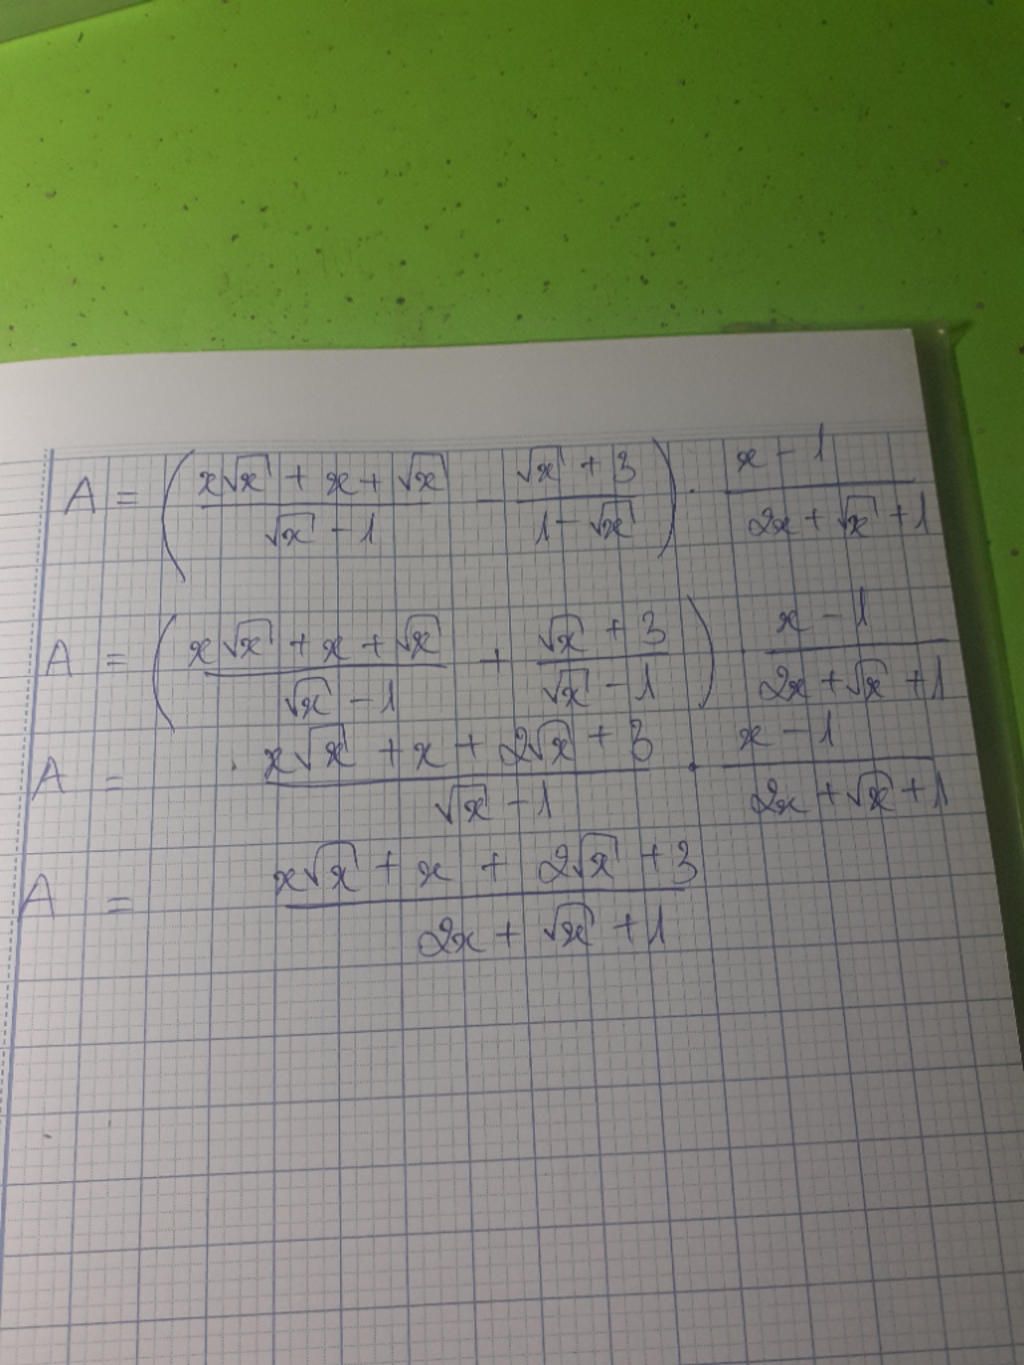 A = ( (x√x + x + √x)/(√x - 1) - (√x + 3)/(1 - √x) ) . (x - 1)/(2x + √x + 1)
A = ( (x√x + x + √x)/(√x - 1) + (√x + 3)/(√x - 1) ) . (x - 1)/(2x + √x + 1)
A = (x√x + x + 2√x + 3)/(√x - 1) . (x - 1)/(2x + √x + 1)
A = (x√x + x + 2√x + 3)/(2x + √x + 1)